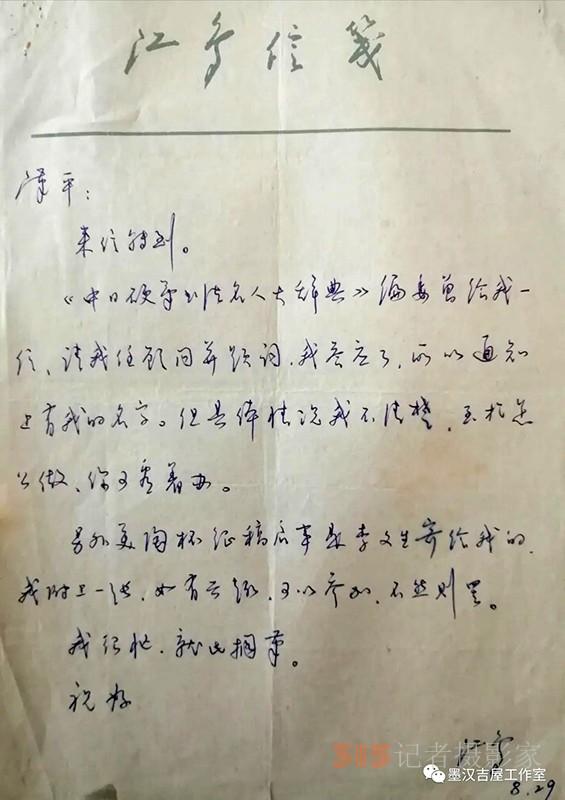 江鸟信笺
汉平：
来信转到。
《中日硬笔书法名人大辞典》编委曾给我一
信，请我任顾问并题词，我答应了，所以通知
上有我的名字。但具体情况我不清楚，至于怎
么做，你可看着办。
另外美陶杯征稿启事是李文生寄给我的，
我附上一张，如有兴趣，可以参加，不然则罢。
我很忙，就此搁笔。
祝好
江鸟
8.29
315记者摄影家
墨汉吉屋工作室